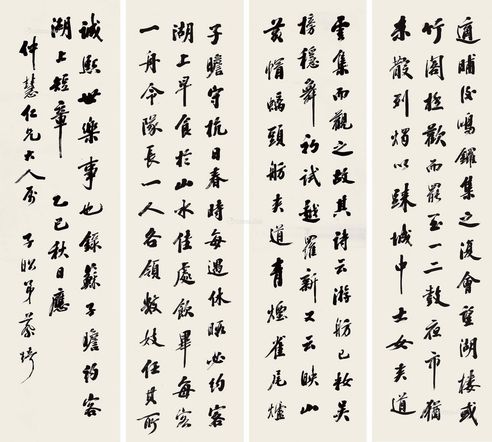 子瞻守杭日春時每遇休暇必約客
湖上早食於山水佳處飲畢每客
一舟令隊長一人各領數妓任其所
適晡後鳴鑼集之復會望湖樓或
竹閣極歡而罷至一二鼓夜市猶
未散列燭以歸城中士女夾道
雲集而觀之故其詩云游舫已妝吴
榜穩舞初試越羅新又云映山
黃帽螭頭舫夾道青煙雀尾爐
誠熙世樂事也錄蘇子瞻約客
湖上短章 乙巳秋日應
仲慧仁兄大人屬 子弟蔡